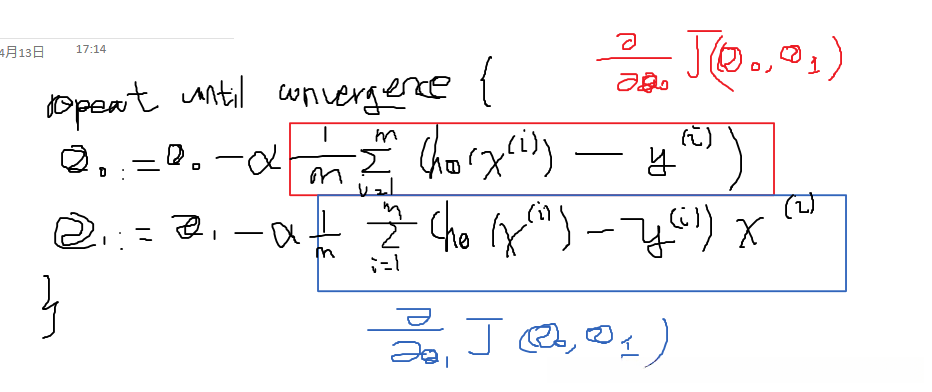 4月13日 17:14
∂/∂θ₀ J(θ₀, θ₁)
repeat until convergence {
θ₀ := θ₀ - α 1/m ∑ᵢ₌₁ᵐ (hθ(x⁽ⁱ⁾) - y⁽ⁱ⁾)
θ₁ := θ₁ - α 1/m ∑ᵢ₌₁ᵐ (hθ(x⁽ⁱ⁾) - y⁽ⁱ⁾) x⁽ⁱ⁾
}
∂/∂θ₁ J(θ₀, θ₁)